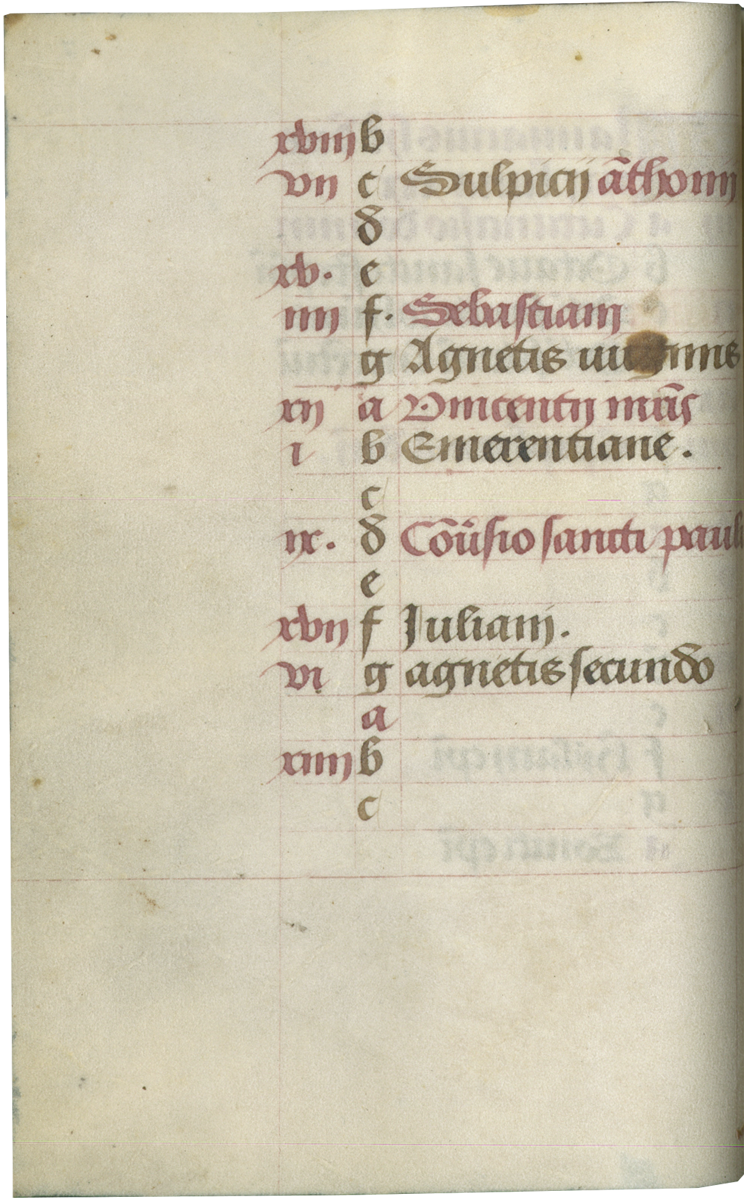 xviij b
vij c Sulpicij āthonij
d
xv. e
iiij f. Sebastiani
g Agnetis uirginis
xij a Vincentij mr̄is
i b Emerentiane.
c
ix. d Cōũsio sancti pauli
e
xvij f Juliani.
vi g agnetis secundo
a
xiiij b
c